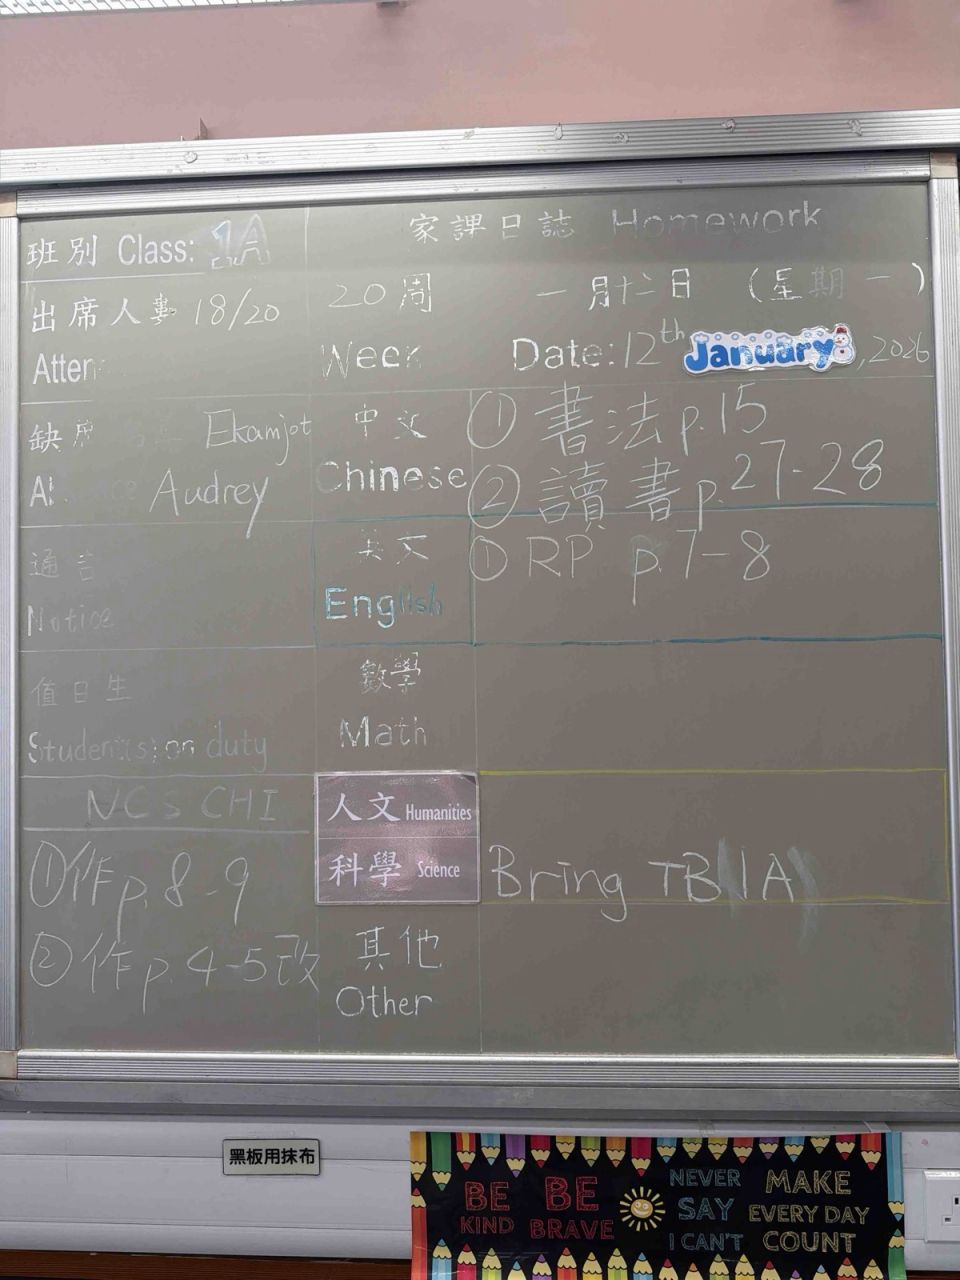 班別 Class: 1A
家課日誌 Homework
出席人數 18/20
20周
一月十二日 (星期一)
Atten
Week
Date: 12th January, 2026
缺席 Ekamjot
中文
① 書法 p.15
Audrey
Chinese
② 讀書 p.27-28
通告
英文
① RP p.7-8
Notice
English
值日生
數學
Student(s) on duty
Math
NCS CHI
人文 Humanities
① 作 p.8-9
科學 Science
Bring TB 1A
② 作 p.4-5 改
其他
Other
黑板用抹布
BE KIND
BE BRAVE
NEVER SAY I CAN'T
MAKE EVERY DAY COUNT